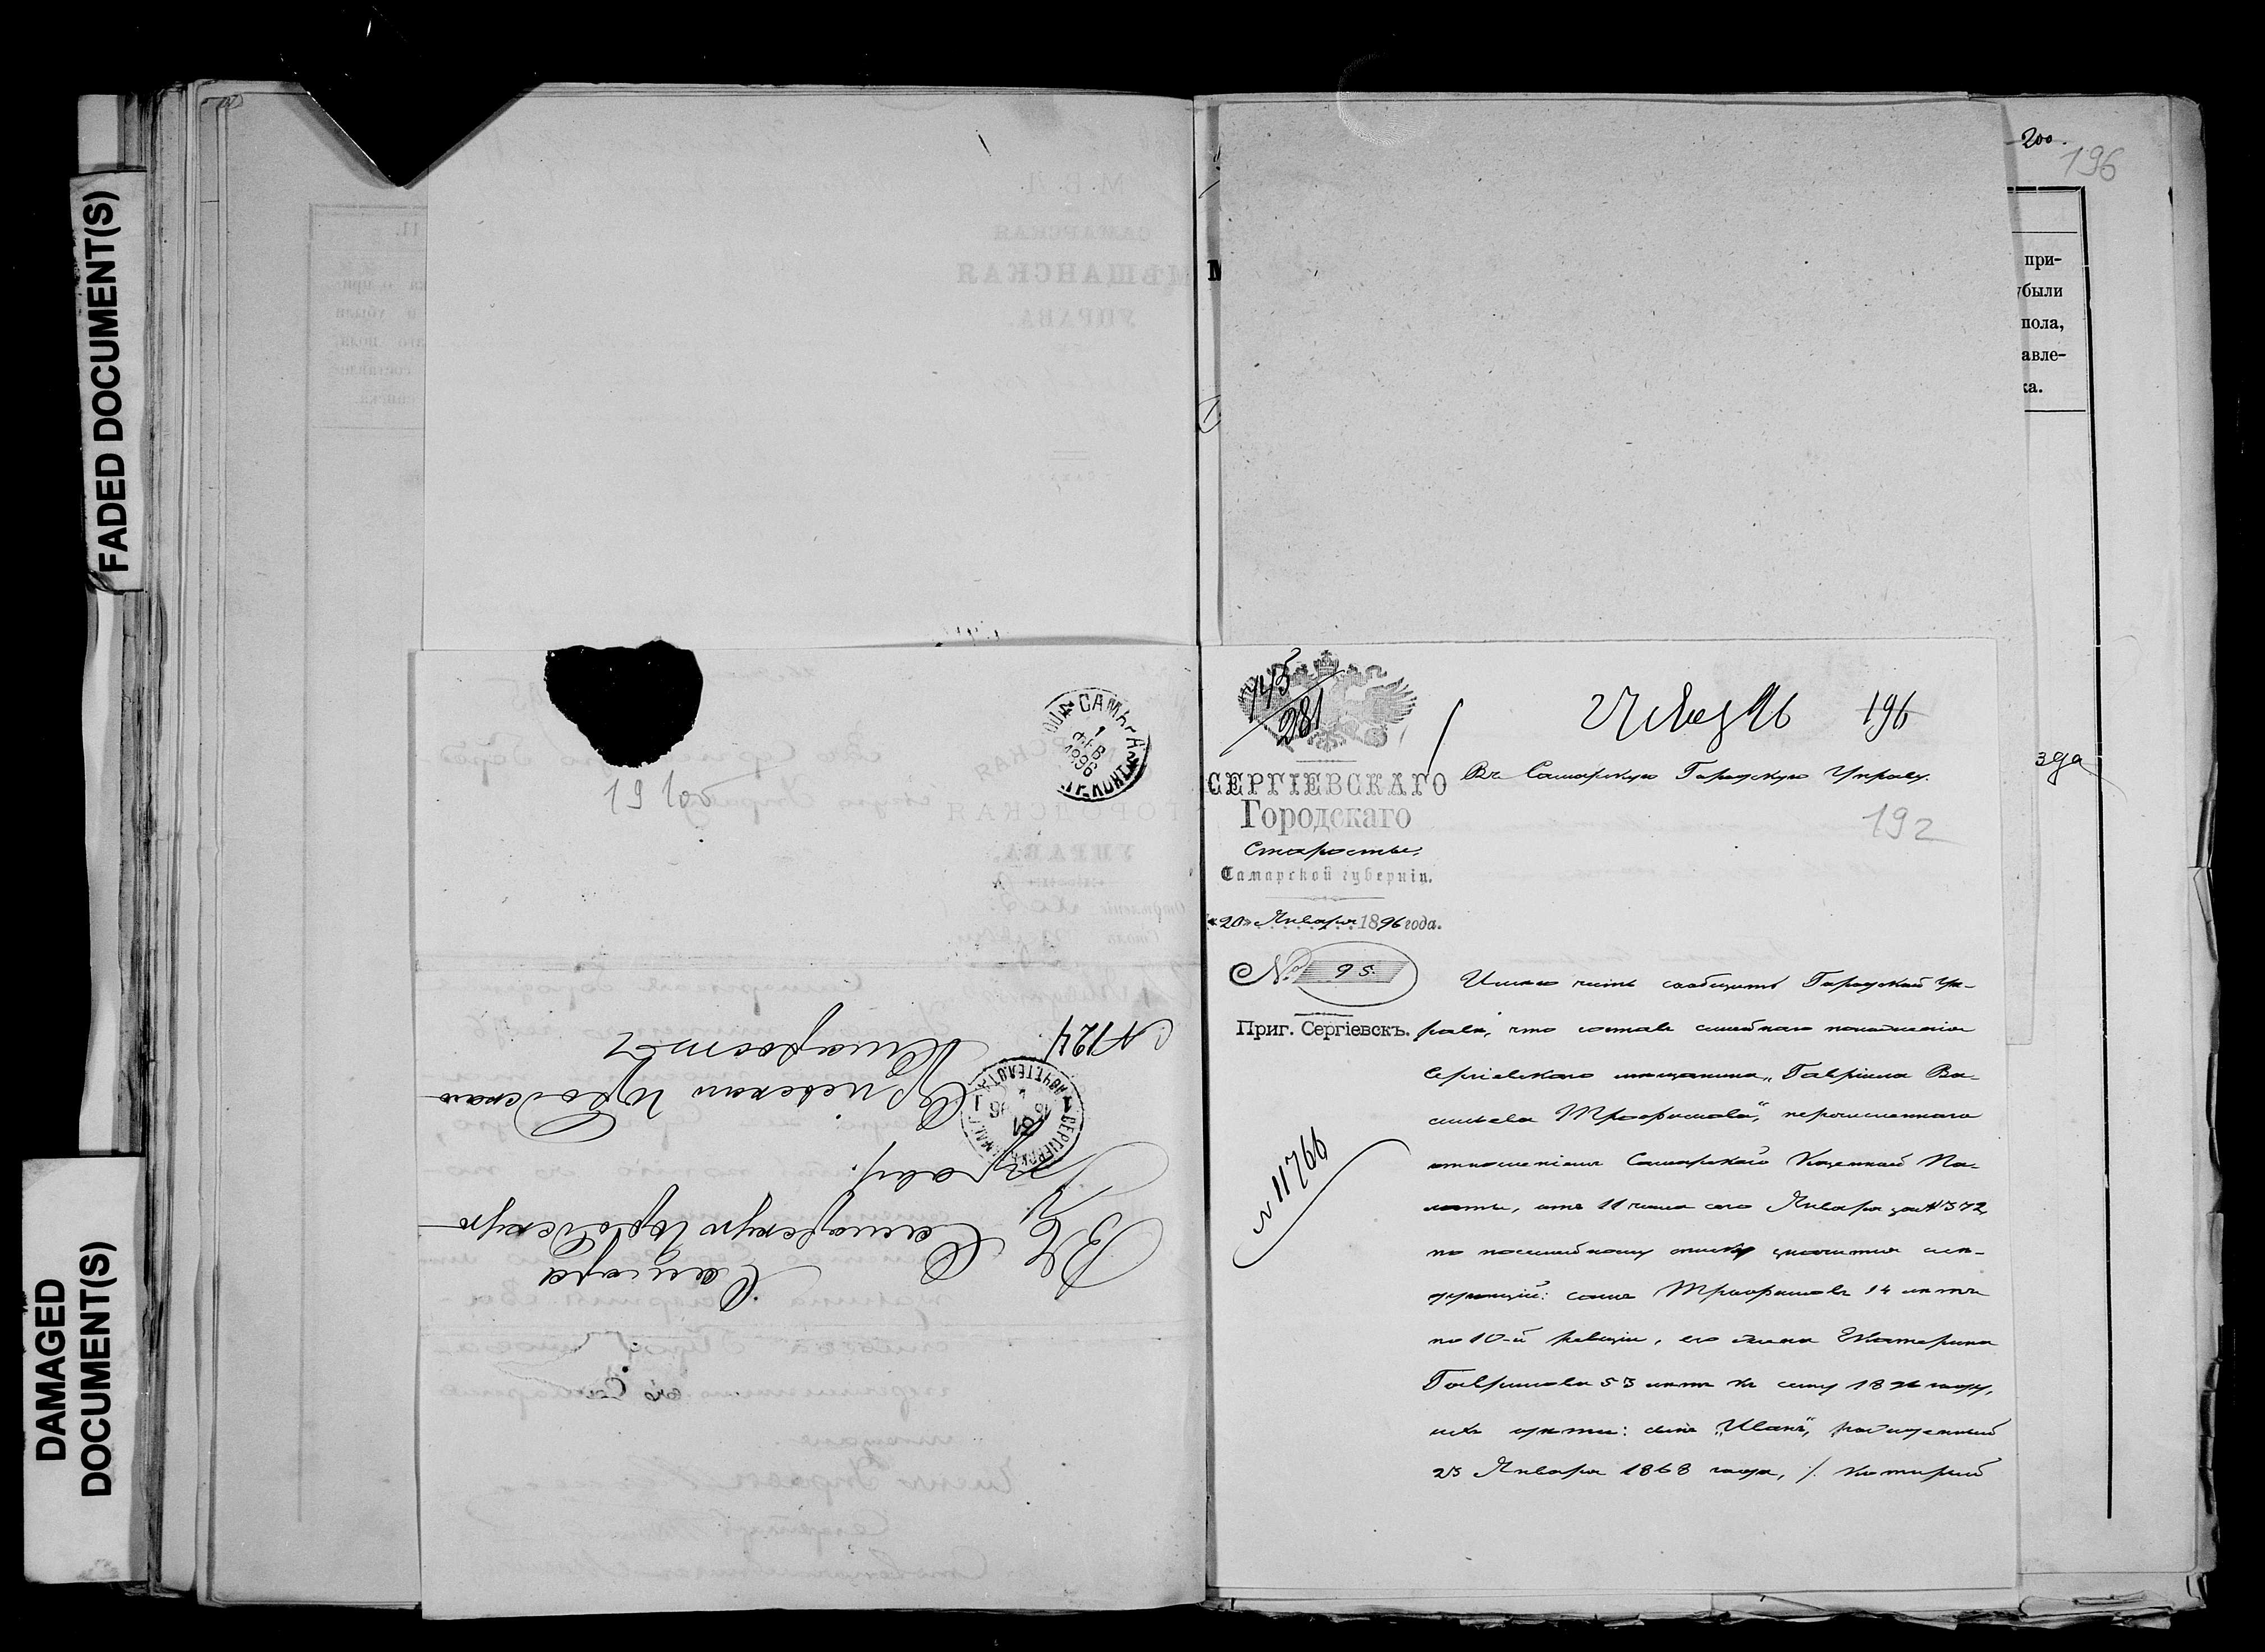 FADED DOCUMENT(S)
DAMAGED
DOCUMENT(S)
САМАРА
1
ФЕВ
1896
191об
№ 124
Старостъ
Сергіевскаго Городскаго
Управу.
Въ Самарскую Городскую
Самара
200.
196
при-
убыли
пола,
авле-
ка.
зда
745
281
196
СЕРГІЕВСКАГО
Городскаго
Старосты.
Самарской губерніи.
«20» Января 1896 года.
№ 95.
Приг. Сергіевскъ.
№ 11766
Въ Самарскую Городскую Управу.
192
Имѣю честь сообщить Городской Уп-
равѣ, что составъ семейнаго положенія
Сергіевскаго мѣщанина „Гавріила Ва-
сильева Трофимова“, перечисленнаго
отношеніемъ Самарской Казенной Па-
латы, отъ 11 числа сего Января за № 572,
по посемейному списку значится слѣ-
дующій: самъ Трофимовъ 14 лѣтъ
по 10-й ревизіи, его жена Екатерина
Гаврилова 53 лѣтъ къ сему 1896 году,
ихъ дѣти: сынъ „Иванъ“, рожденный
23 Января 1868 года, /. который